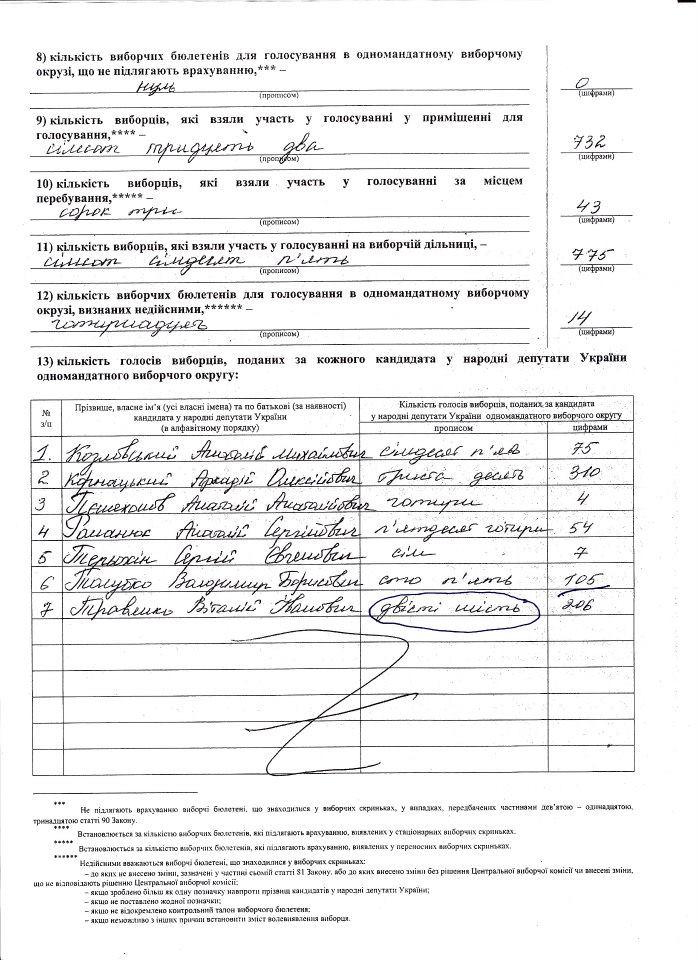 8) кількість виборчих бюлетенів для голосування в одномандатному виборчому
окрузі, що не підлягають врахуванню,*** –
нуль 0
(прописом) (цифрами)
9) кількість виборців, які взяли участь у голосуванні у приміщенні для
голосування,**** –
сімсот тридцять два 732
(прописом) (цифрами)
10) кількість виборців, які взяли участь у голосуванні за місцем
перебування,***** –
сорок три 43
(прописом) (цифрами)
11) кількість виборців, які взяли участь у голосуванні на виборчій дільниці, –
сімсот сімдесят п'ять 775
(прописом) (цифрами)
12) кількість виборчих бюлетенів для голосування в одномандатному виборчому
окрузі, визнаних недійсними,****** –
чотирнадцять 14
(прописом) (цифрами)
13) кількість голосів виборців, поданих за кожного кандидата у народні депутати України
одномандатного виборчого округу:
№ з/п
Прізвище, власне ім’я (усі власні імена) та по батькові (за наявності)
кандидата у народні депутати України
(в алфавітному порядку)
Кількість голосів виборців, поданих за кандидата
у народні депутати України одномандатного виборчого округу
прописом цифрами
1. Козловський Анатолій Михайлович сімдесят п'ять 75
2 Корнацький Аркадій Олексійович триста десять 310
3 Пєшеходов Анатолій Анатолійович чотири 4
4 Романюк Анатолій Сергійович п'ятдесят чотири 54
5 Терьохін Сергій Євгенович сім 7
6 Толубко Володимир Борисович сто п'ять 105
7 Травенко Віталій Іванович двісті шість 206
***
Не підлягають врахуванню виборчі бюлетені, що знаходилися у виборчих скриньках, у випадках, передбачених частинами дев’ятою – одинадцятою,
тринадцятою статті 90 Закону.
****
Встановлюється за кількістю виборчих бюлетенів, які підлягають врахуванню, виявлених у стаціонарних виборчих скриньках.
*****
Встановлюється за кількістю виборчих бюлетенів, які підлягають врахуванню, виявлених у переносних виборчих скриньках.
******
Недійсними вважаються виборчі бюлетені, що знаходилися у виборчих скриньках:
– до яких не внесено зміни, зазначені у частині сьомій статті 81 Закону, або до яких внесено зміни без рішення Центральної виборчої комісії чи внесені зміни,
що не відповідають рішенню Центральної виборчої комісії;
– якщо зроблено більш як одну позначку навпроти прізвищ кандидатів у народні депутати України;
– якщо не поставлено жодної позначки;
– якщо не відокремлено контрольний талон виборчого бюлетеня;
– якщо неможливо з інших причин встановити зміст волевиявлення виборця.